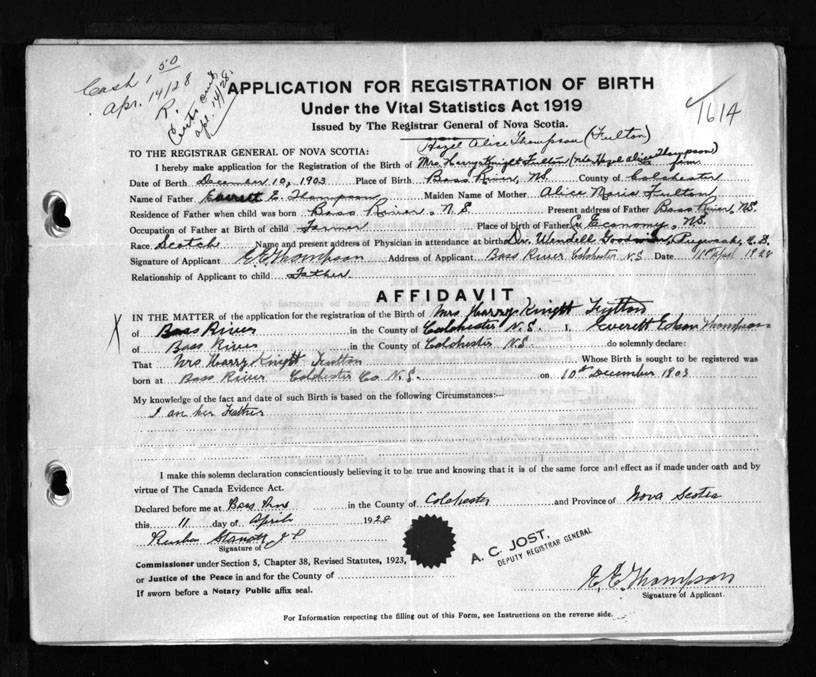 Cash 1.50
Apr. 14/28
R.
Certs out
apr. 14/28.
1614
APPLICATION FOR REGISTRATION OF BIRTH
Under the Vital Statistics Act 1919
Issued by The Registrar General of Nova Scotia.
Hazel Alice Thompson (Fulton)
TO THE REGISTRAR GENERAL OF NOVA SCOTIA:
I hereby make application for the Registration of the Birth of Mrs. Harry Knight Fulton (née Hazel Alice Thompson) fem
Date of Birth December 10, 1903 Place of Birth Bass River, N.S. County of Colchester
Name of Father Everett E. Thompson Maiden Name of Mother Alice Maria Fulton
Residence of Father when child was born Bass River, N.S. Present address of Father Bass River, N.S.
Occupation of Father at Birth of child Farmer Place of birth of Father Economy, N.S.
Race Scotch Name and present address of Physician in attendance at birth Dr. Wendell
Signature of Applicant E. E. Thompson Address of Applicant Bass River Colchester N.S. Date 11 Apl 1928
Relationship of Applicant to child Father
AFFIDAVIT
IN THE MATTER of the application for the registration of the Birth of Mrs Harry Knight Fulton
X of Bass River in the County of Colchester N.S. I, Everett Edson Thompson
of Bass River in the County of Colchester N.S. do solemnly declare:
That Mrs Harry Knight Fulton Whose Birth is sought to be registered was
born at Bass River Colchester Co. N.S. on 10th December 1903
My knowledge of the fact and date of such Birth is based on the following Circumstances:—
I am her Father
I make this solemn declaration conscientiously believing it to be true and knowing that it is of the same force and effect as if made under oath and by
virtue of The Canada Evidence Act.
Declared before me at Bass River in the County of Colchester and Province of Nova Scotia
this 11 day of April 1928
J P
Signature of
Commissioner under Section 5, Chapter 38, Revised Statutes, 1923,
or Justice of the Peace in and for the County of
If sworn before a Notary Public affix seal.
A. C. JOST,
DEPUTY REGISTRAR GENERAL
E. E. Thompson
Signature of Applicant.
For Information respecting the filling out of this Form, see Instructions on the reverse side.